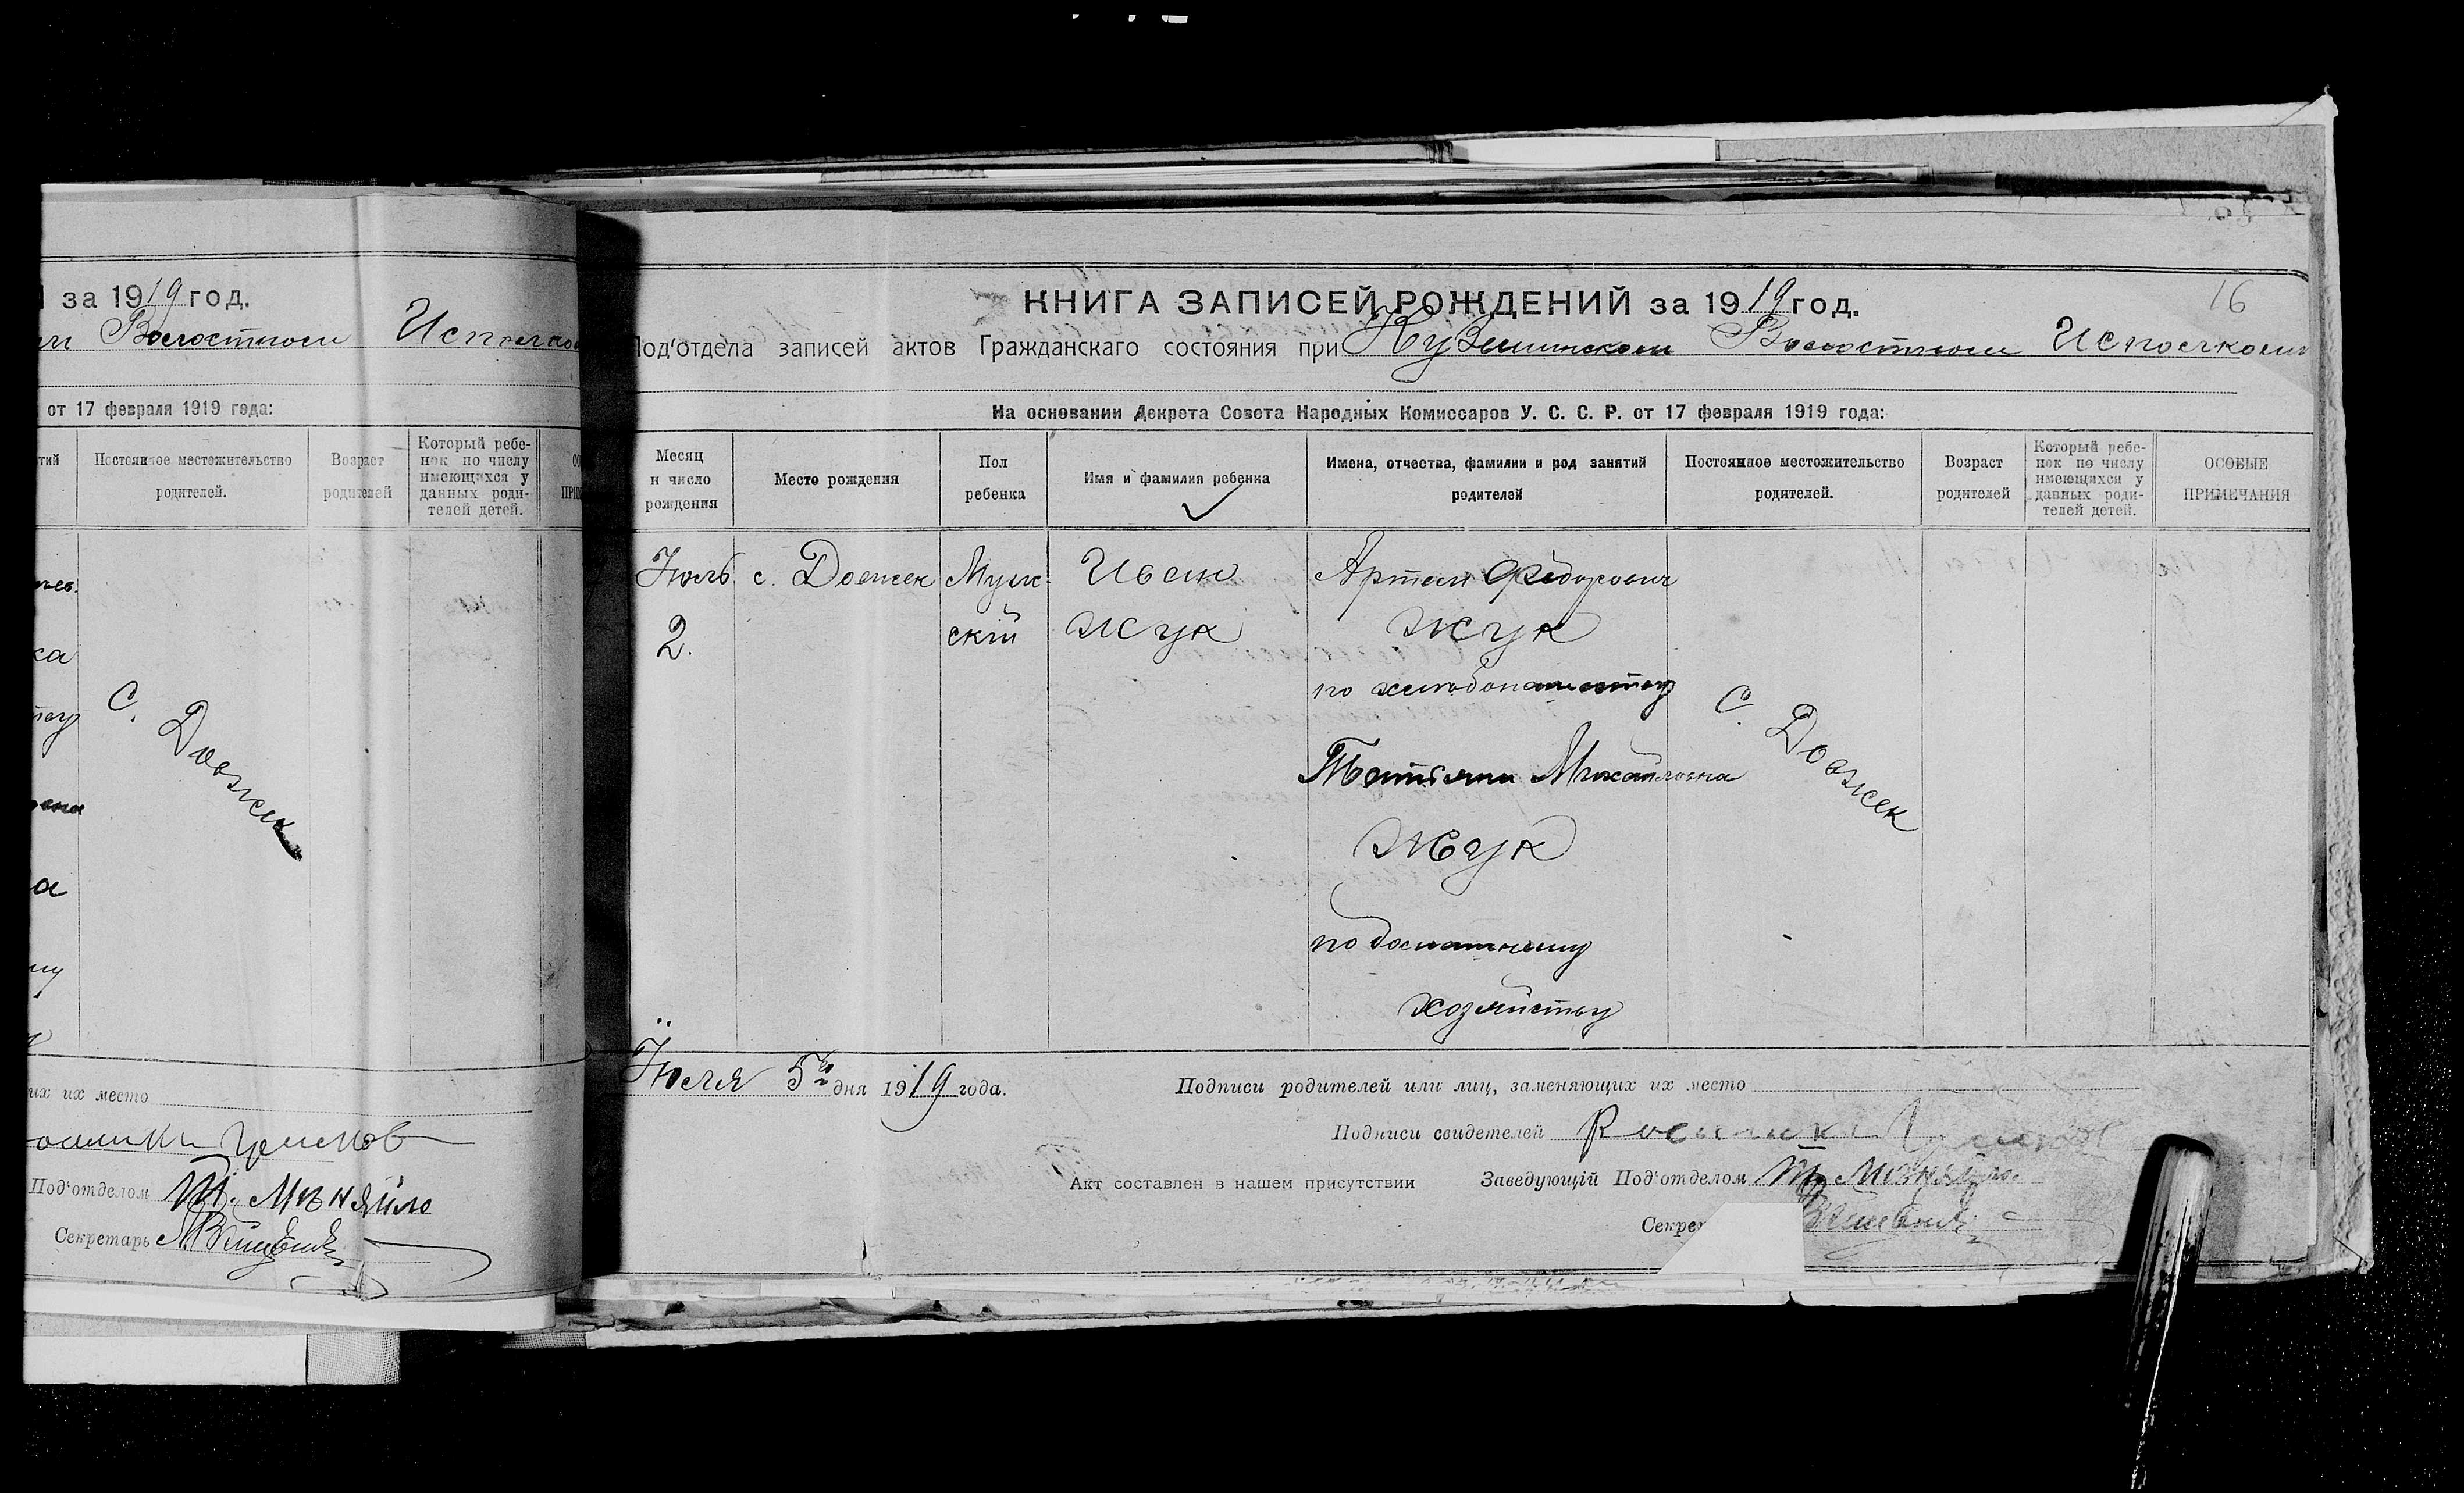 за 1919 год.
Волостном Исполко
от 17 февраля 1919 года:
тий
Постоянное местожительство
родителей.
Возраст
родителей
Который ребе-
нок по числу
имеющихся у
данных роди-
телей детей.
ка
С. Довжек
а
их их место
Под'отделом
Секретарь
16
КНИГА ЗАПИСЕЙ РОЖДЕНИЙ за 1919 год.
Под'отдела записей актов Гражданскаго состояния при Волостном Исполком
На основании Декрета Совета Народных Комиссаров У. С. С. Р. от 17 февраля 1919 года:
Месяц
и число
рождения
Место рождения
Пол
ребенка
Имя и фамилия ребенка
Имена, отчества, фамилии и род занятий
родителей
Постоянное местожительство
родителей.
Возраст
родителей
Который ребе-
нок по числу
имеющихся у
данных роди-
телей детей.
ОСОБЫЕ
ПРИМЕЧАНИЯ
Июль
2.
с. Довжек
Муж-
скій
Иван
Жук
Артем Федорович
Жук
по хлебопашеству
Татьяна Михайловна
Жук
по домашнему
хозяйству
С. Довжек
Июля 5го дня 1919 года.
Подписи родителей или лиц, заменяющих их место
Подписи свидетелей
Акт составлен в нашем присутствии
Заведующій Под'отделом
Секре